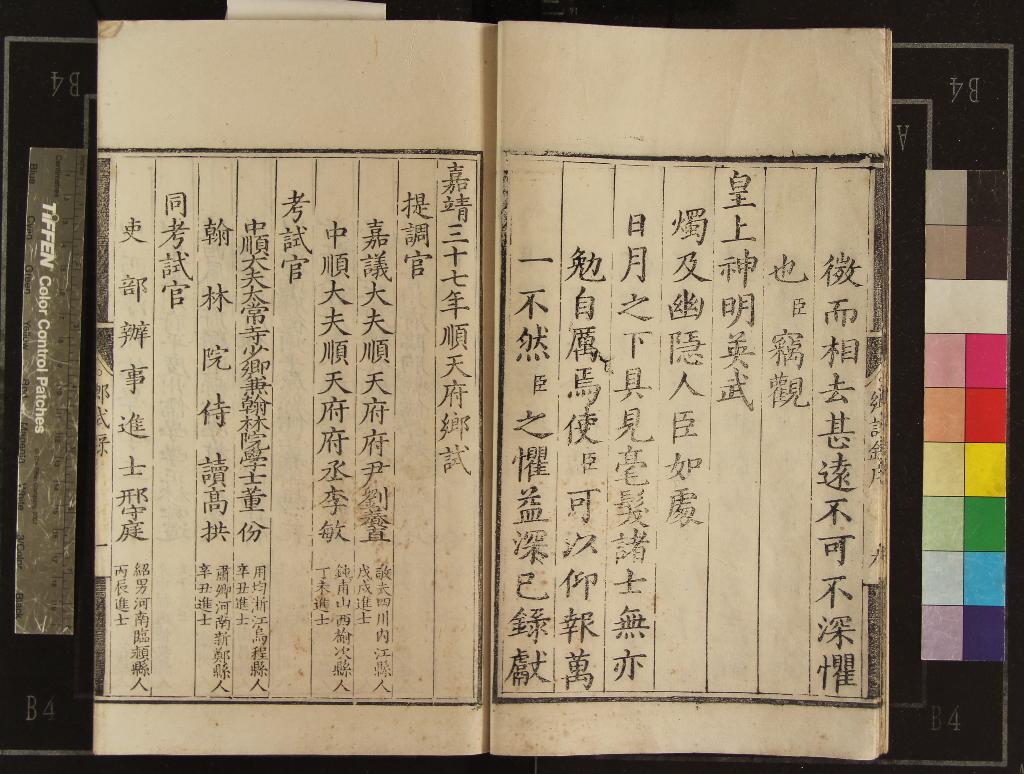 微而相去甚遠不可不深懼
也臣竊觀
皇上神明英武
燭及幽隱人臣如處
日月之下具見毫髮諸士無亦
勉自厲焉使臣可以仰報萬
一不然臣之懼益深已錄獻
嘉靖三十七年順天府鄉試
提調官
嘉議大夫順天府府尹劉
四川內江縣人
戊戌進士
中順大夫順天府府丞李敏
山西榆次縣人
丁未進士
考試官
中順大夫太常寺少卿兼翰林院學士董份
用均浙江烏程縣人
辛丑進士
翰林院侍讀高拱
肅卿河南新鄭縣人
辛丑進士
同考試官
吏部辦事進士邢守庭
紹男河南臨潁縣人
丙辰進士
鄉試錄
一
TIFFEN Color Control Patches
B4
B4
B4
B4
A